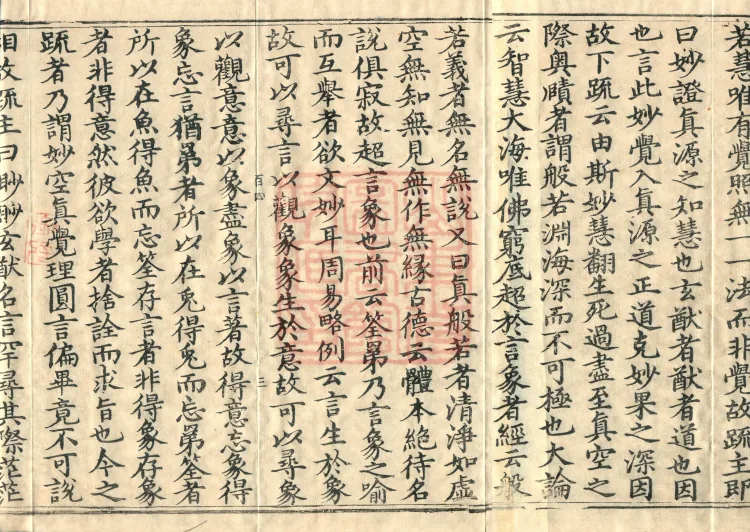 若慧唯有覺照無一一法而非覺故疏主即
曰妙證真源之知慧也玄猷者猷者道也因
也言此妙覺入真源之正道克妙果之深因
故下疏云由斯妙慧翻生死過盡至真空之
際奧賾者謂般若淵海深而不可極也大論
云智慧大海唯佛窮底超於言象者經云般
若義者無名無說又曰真般若者清淨如虛
空無知無見無作無緣古德云體本絕待名
說俱寂故超言象也前云筌第乃言象之喻
而互舉者欲文妙耳周易略例云言生於象
故可以尋言以觀象象生於意故可以尋象
百四
三
以觀意意以象盡象以言著故得意忘象得
象忘言猶第者所以在兎得兎而忘第筌者
所以在魚得魚而忘筌存言者非得象存象
者非得意然彼欲學者捨詮而求旨也今之
疏者乃謂妙空真覺理圓言偏畢竟不可說
相故疏主曰眇眇玄猷名言罕尋其際茫茫